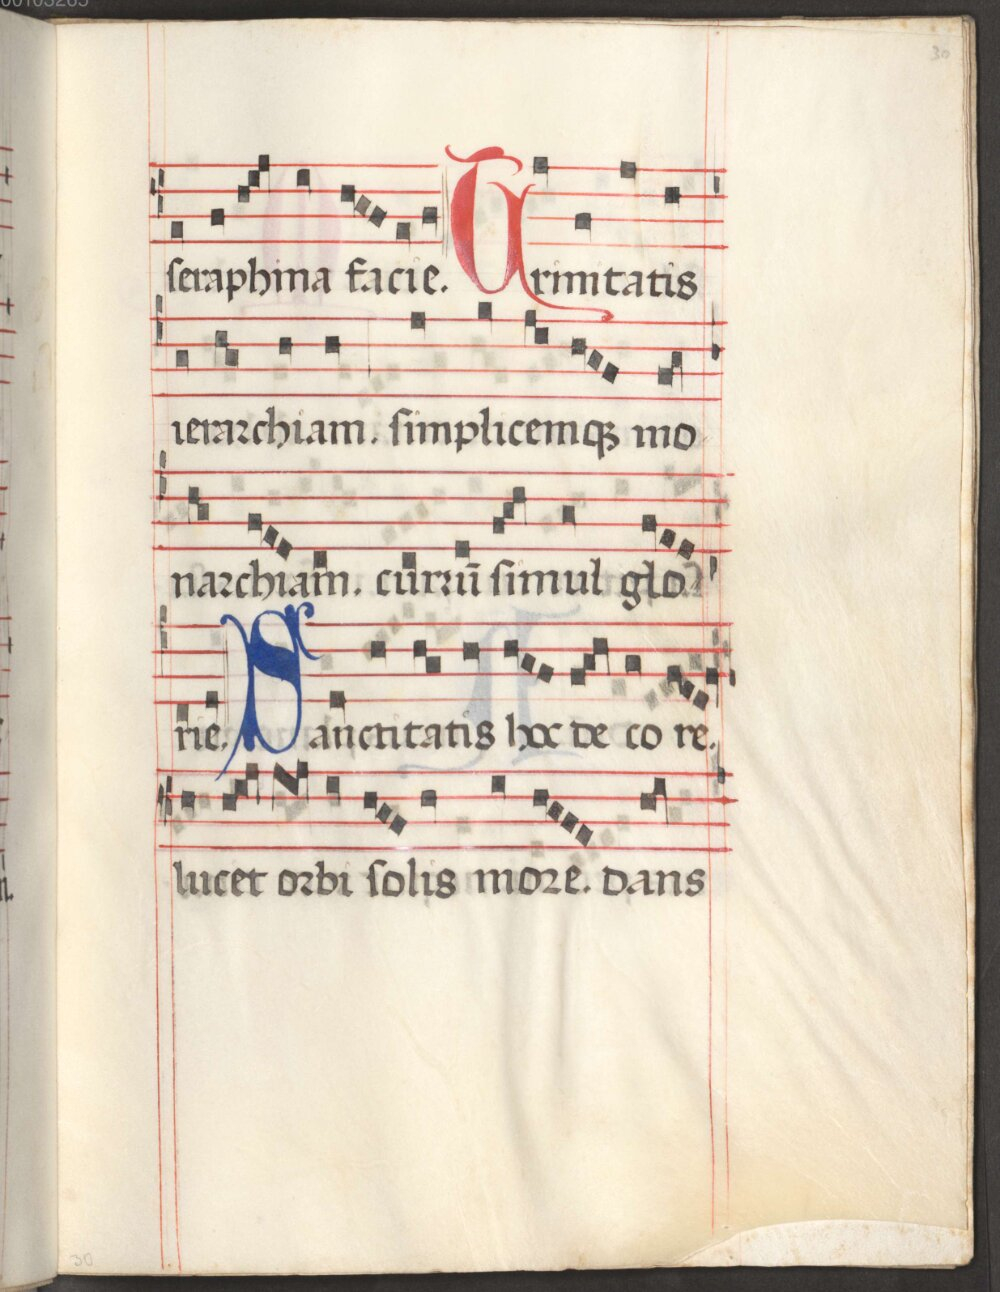 30
seraphina facie. Trinitatis
ierarchiam. simplicemqʒ mo
narchiam. currū simul glo
rie. Sanctitatis hoc de co re.
lucet orbi solis more. dans
30